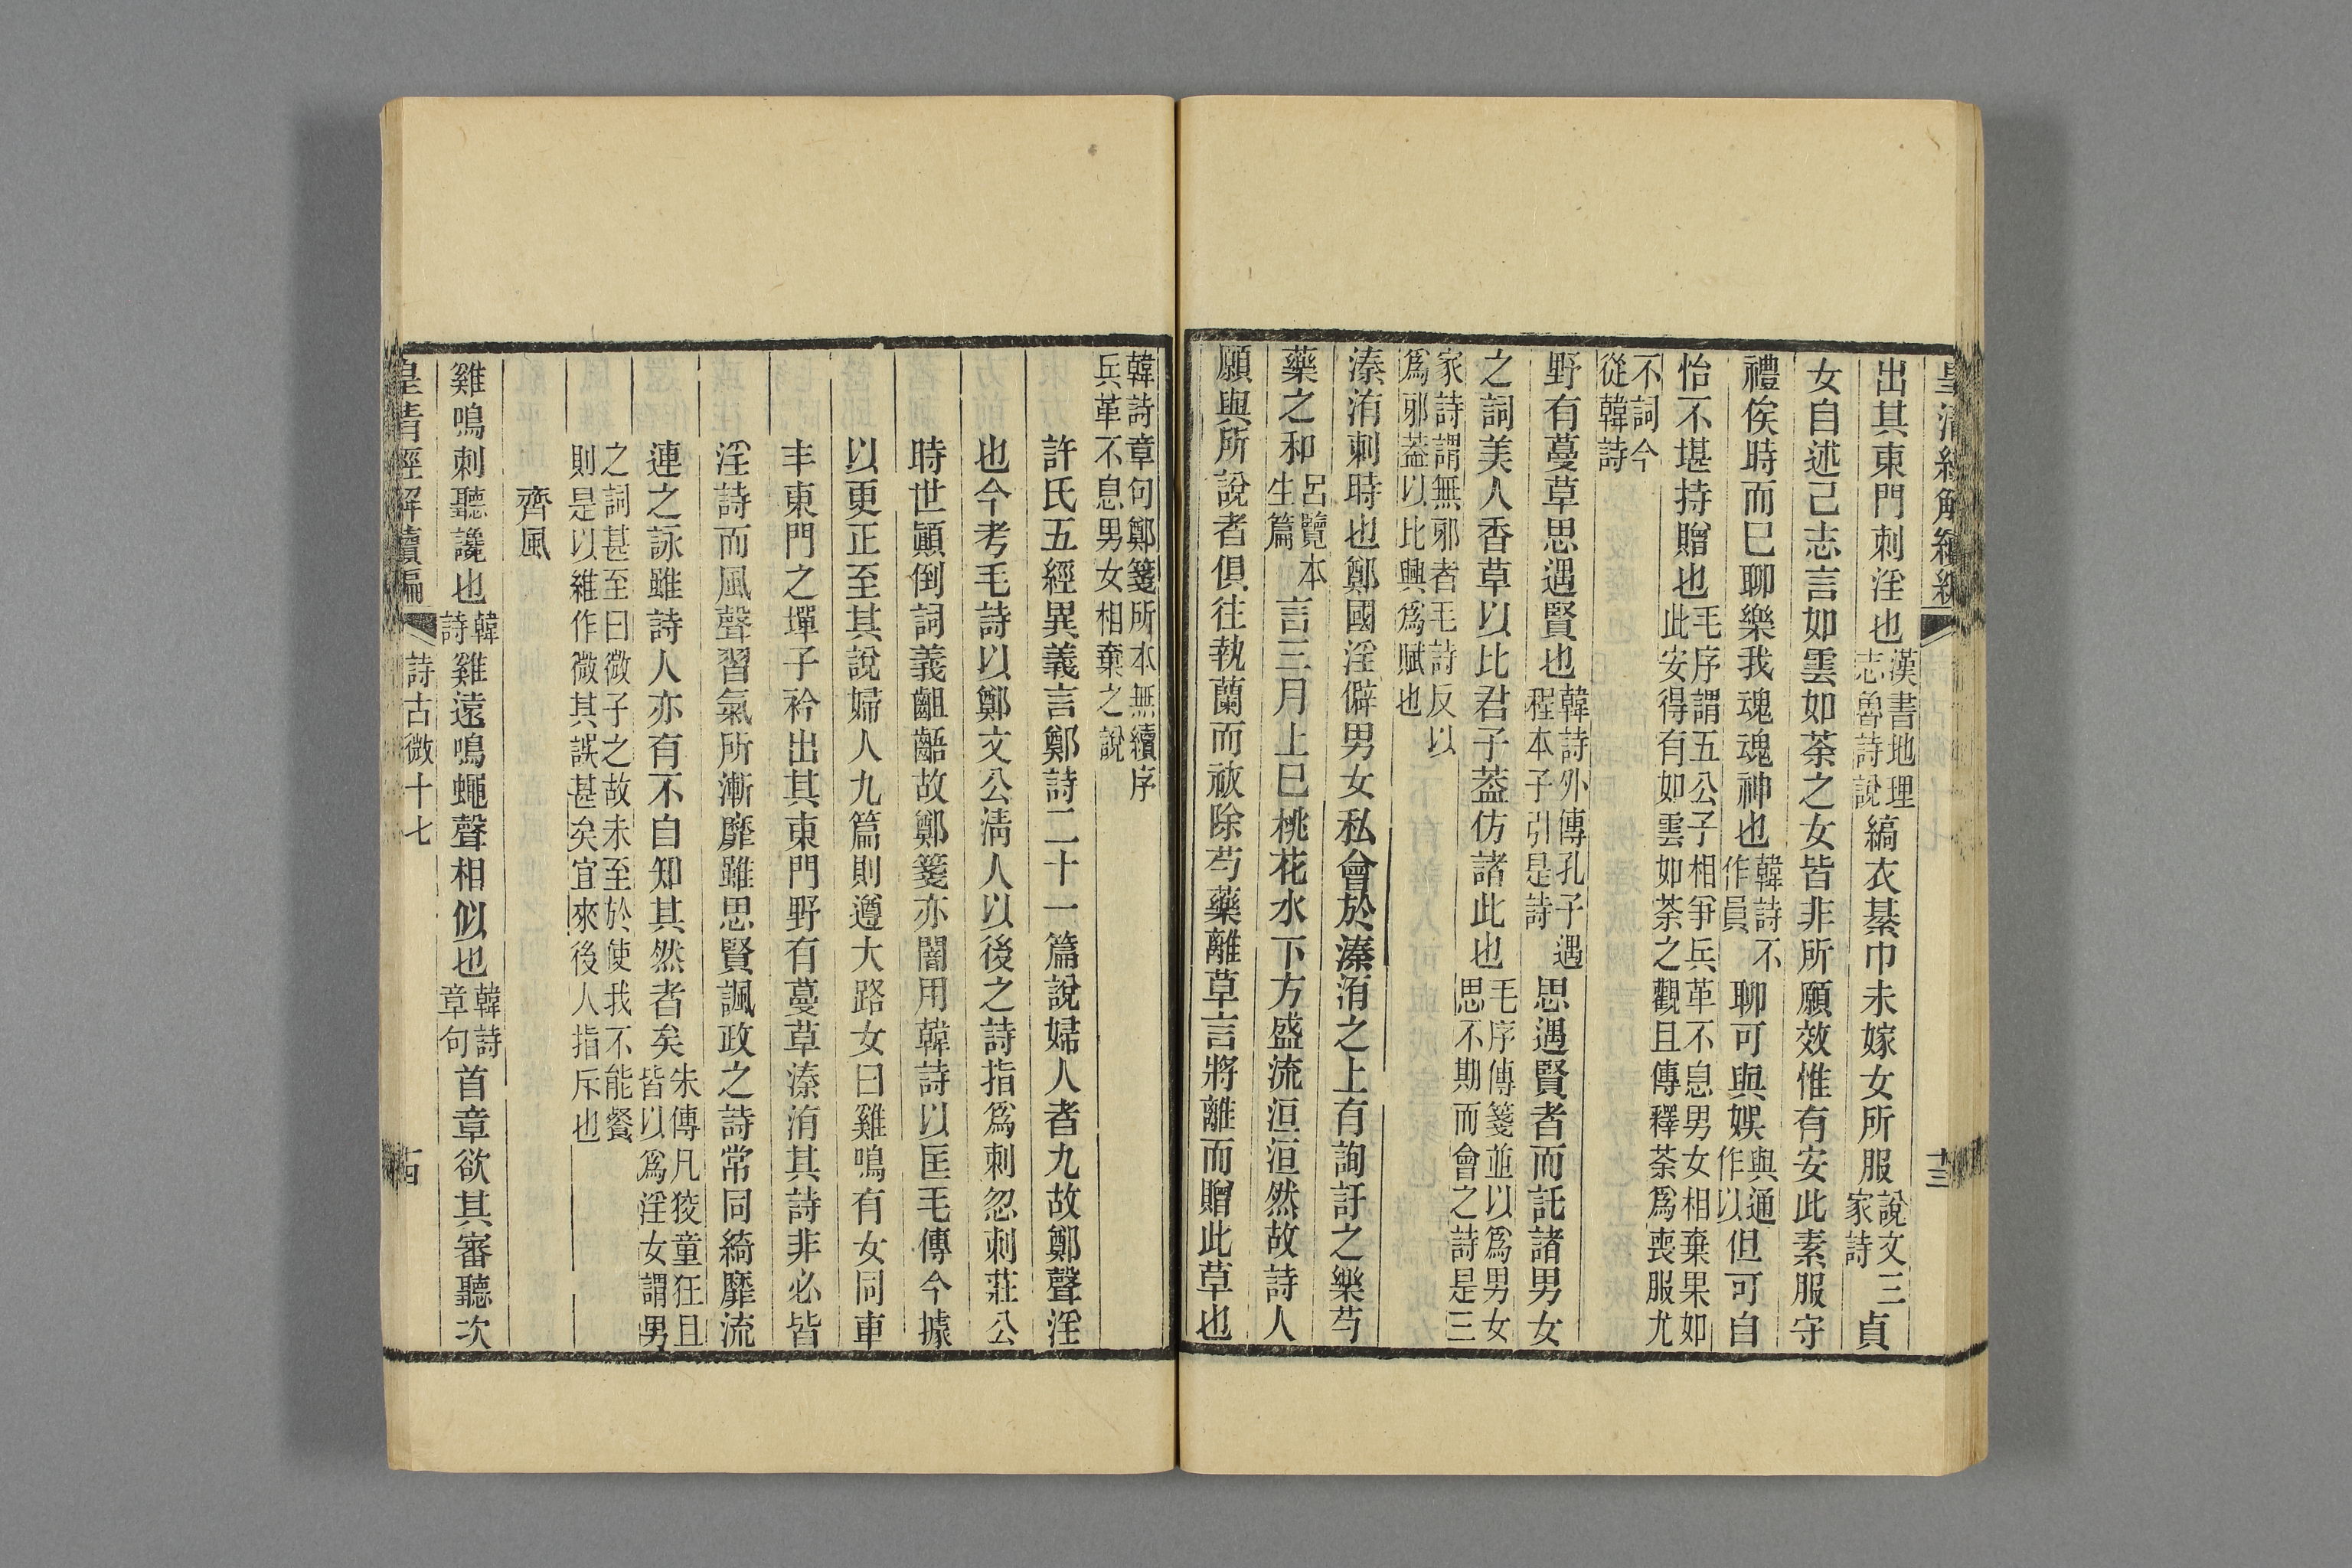 皇清經解續編
十三
出其東門刺淫也漢書地理志魯詩說縞衣綦巾未嫁女所服說文三家詩貞
女自述己志言如雲如荼之女皆非所願效惟有安此素服守
禮俟時而巳聊樂我魂魂神也韓詩不作員聊可與娛與通作以但可自
怡不堪持贈也毛序謂五公子相爭兵革不息男女相棄果如此安得有如雲如荼之觀且傳釋荼爲喪服尤
不詞今從韓詩
野有蔓草思遇賢也韓詩外傳孔子遇程本子引是詩思遇賢者而託諸男女
之詞美人香草以比君子葢仿諸此也毛序傳箋並以爲男女思不期而會之詩是三
家詩謂無邪者毛詩反以爲邪葢以比興爲賦也
溱洧刺時也鄭國淫僻男女私會於溱洧之上有詢訏之樂芍
藥之和呂覽本生篇言三月上巳桃花水下方盛流洹洹然故詩人
願與所說者俱往執蘭而祓除芍藥離草言將離而贈此草也
韓詩章句鄭箋所本無續序兵革不息男女相棄之說
許氏五經異義言鄭詩二十一篇說婦人者九故鄭聲淫
也今考毛詩以鄭文公淸人以後之詩指爲刺忽刺莊公
時世顚倒詞義齟齬故鄭箋亦闇用韓詩以匡毛傳今據
以更正至其說婦人九篇則遵大路女曰雞鳴有女同車
丰東門之墠子衿出其東門野有蔓草溱洧其詩非必皆
淫詩而風聲習氣所漸靡雖思賢諷政之詩常同綺靡流
連之詠雖詩人亦有不自知其然者矣朱傳凡狡童狂且皆以爲淫女謂男
之詞甚至曰微子之故未至於使我不能餐則是以維作微其誤甚矣宜來後人指斥也
齊風
雞鳴刺聽讒也韓詩雞遠鳴蠅聲相似也韓詩章句首章欲其審聽次
皇清經解續編
詩古微十七
十四